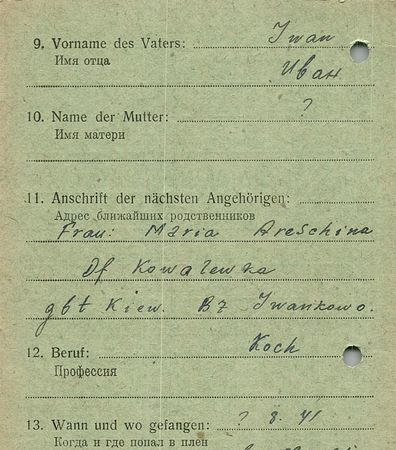 9. Vorname des Vaters: Iwan
Имя отца Иван
10. Name der Mutter: ?
Имя матери
11. Anschrift der nächsten Angehörigen:
Адрес ближайших родственников
Frau: Maria Areschina
Df Kowalewka
gbt Kiew. Bz Iwankowo.
12. Beruf: Koch
Профессия
13. Wann und wo gefangen: ? 8. 41
Когда и где попал в плен